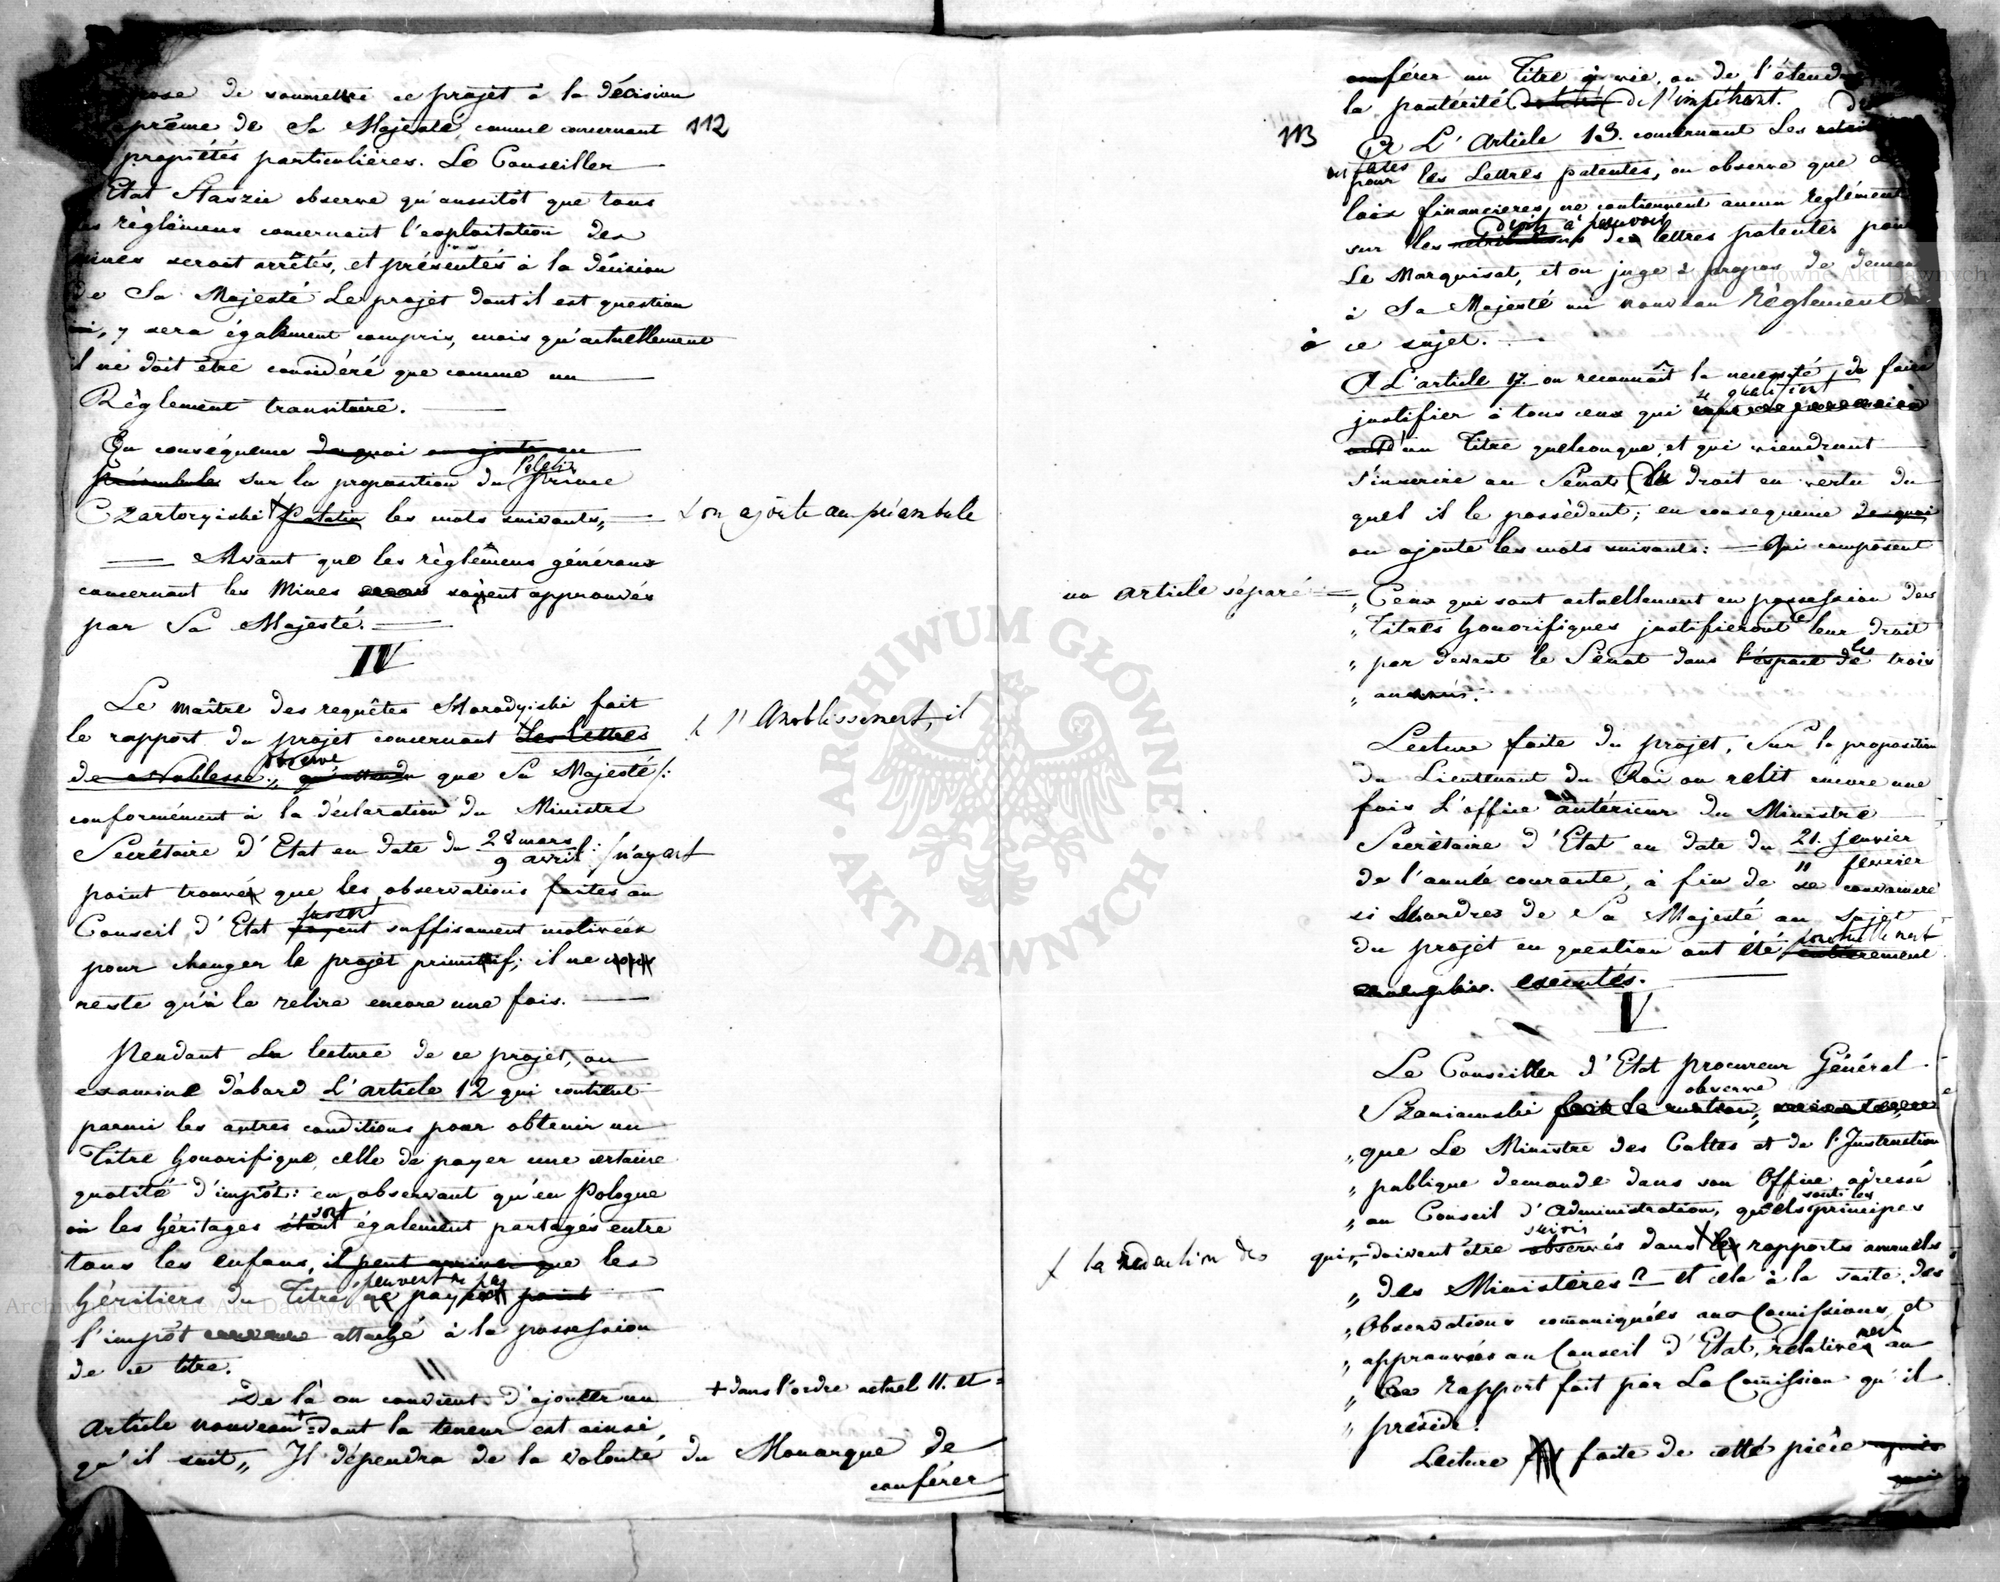 de soumettre ce projet à la décision
prême de Sa Majesté comme concernant 112
propriétés particulières. Le Conseiller
Etat Staszic observe qu'aussitôt que tous
les règlemens concernant l'exploitation des
mines seront arrêtés, et présentés à la décision
de Sa Majesté Le projet dont il est question
ici, y sera également compris, mais qu'actuellement
il ne doit être considéré que comme un
Règlement transitoire.
En conséquence de quoi on ajoute au
préambule sur la proposition du Prince Palatin
Czartoryiski Palatin les mots suivants,, l'on ajoute au préambule
Avant que les règlemens généraux
concernant les Mines soyent approuvés
par Sa Majesté.
IV
Le maître des requêtes Horodyiski fait
le rapport du projet concernant les lettres l'Anoblissement, il
de Noblesse,, observe que Sa Majesté /:
conformément à la déclaration du Ministre
Secrétaire d'Etat en date du 28 mars / 9 avril :/ n'ayant
point trouvé que les observations faites au
Conseil d'Etat fussent suffisament motivées
pour changer le projet primitif; il ne
reste qu'à le relire encore une fois.
Pendant la lecture de ce projet, on
examine d'abord L'article 12 qui contient
parmi les autres conditions pour obtenir un
Titre honorifique, celle de payer une certaine
quotité d'impôt: en observant qu'en Pologne
où les héritages étant sont également partagés entre
tous les enfans, il peut arriver que les
héritiers du Titre peuvent ne pas payer point
l'impôt attaché à la possession
de ce titre.
De là on convient d'ajouter un + dans l'ordre actuel 11. et
article nouveau + dont la teneur est ainsi
qu'il suit,, Il dépendra de la volonté du Monarque de
conférer
conférer un Titre à vie, ou de l'étendre
la postérité de l'impétrant.
113 A L'Article 13. concernant Les
pour les Lettres patentes, on observe que
loix financieres ne contiennent aucun règlement
sur les retributions droits à percevoir des lettres patentes pour
Le Marquisat, et on juge à propos de
à Sa Majesté un nouveau Règlement
à ce sujet.
A L'article 17. on reconnaît la necessité de faire
justifier à tous ceux qui se qualifient
d'un Titre quelconque, et qui viendront
s'inscrire au Sénat le droit en vertu du
quel il le possèdent; en consequence de quoi
on ajoute les mots suivants: Qui composent
un article séparé = ,, Ceux qui sont actuellement en possession des
,, Titres honorifiques justifieront leur droit
,, par devant le Sénat dans l'éspace de les trois
,, années.
Lecture faite du projet, Sur la proposition
du Lieutenant du Roi on relit encore une
fois L'office antérieur du Ministre
Secrétaire d'Etat en date du 21. Janvier
de l'année courante, à fin de se convaincre 11 fevrier
si les ordres de Sa Majesté au sujet
du projet en question ont été entierement
executés.
V
Le Conseiller d'Etat Procureur Général
Szaniawski fait la motion, observe
,, que Le Ministre des Cultes et de l'Instruction
,, publique demande dans son Office adressé
,, au Conseil d'Administration, quels sont les principes
+ la redaction des qui,, doivent être observés suivis dans les rapports annuels
,, des Ministères? et cela à la suite des
,, Observations comuniquées aux Comissions, et
,, approuvées au Conseil d'Etat, relativement au
,, Rapport fait par La Comission qu'il
,, préside.
Lecture faite de cette pièce après
quoi